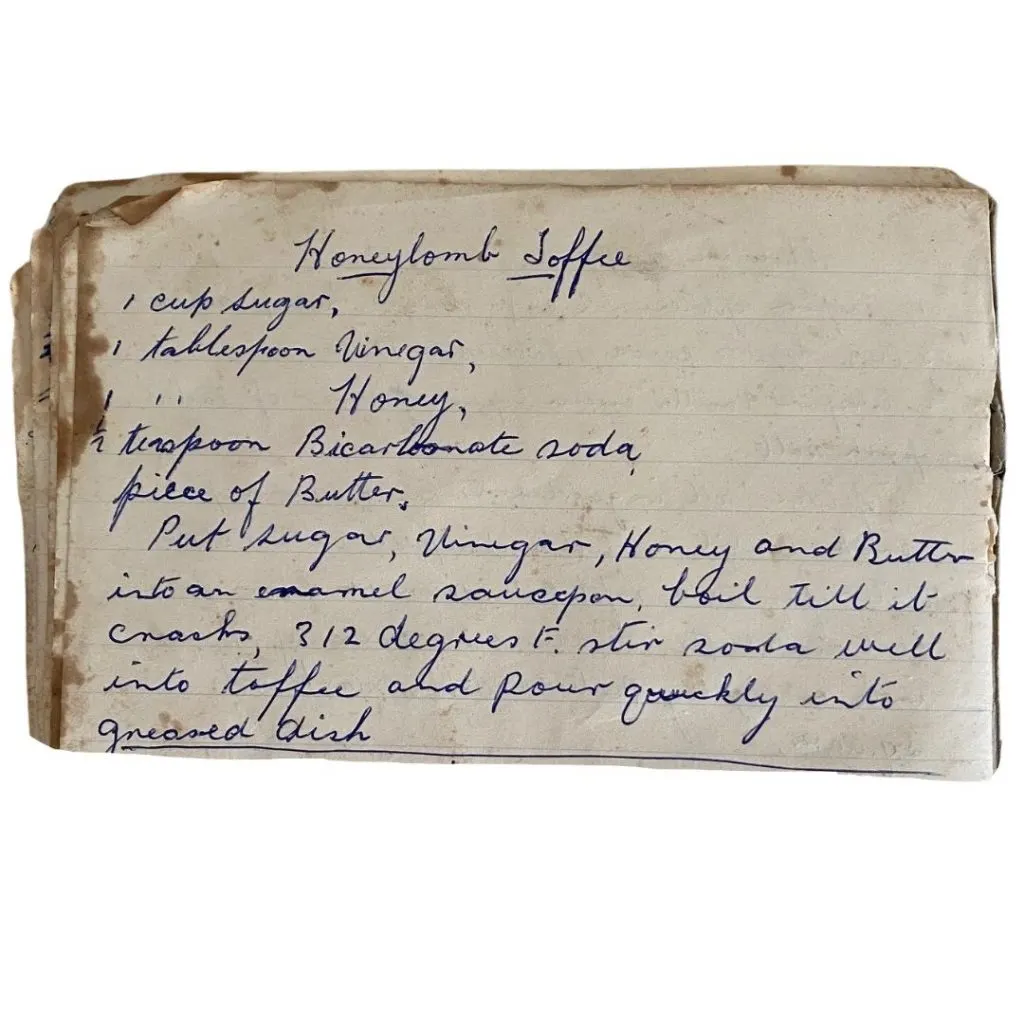 Honeycomb Toffee
1 cup sugar,
1 tablespoon Vinegar,
1 " Honey,
½ teaspoon Bicarbonate soda,
piece of Butter.
Put sugar, Vinegar, Honey and Butter
into an enamel saucepan, boil till it
cracks, 312 degrees F. stir soda well
into toffee and pour quickly into
greased dish